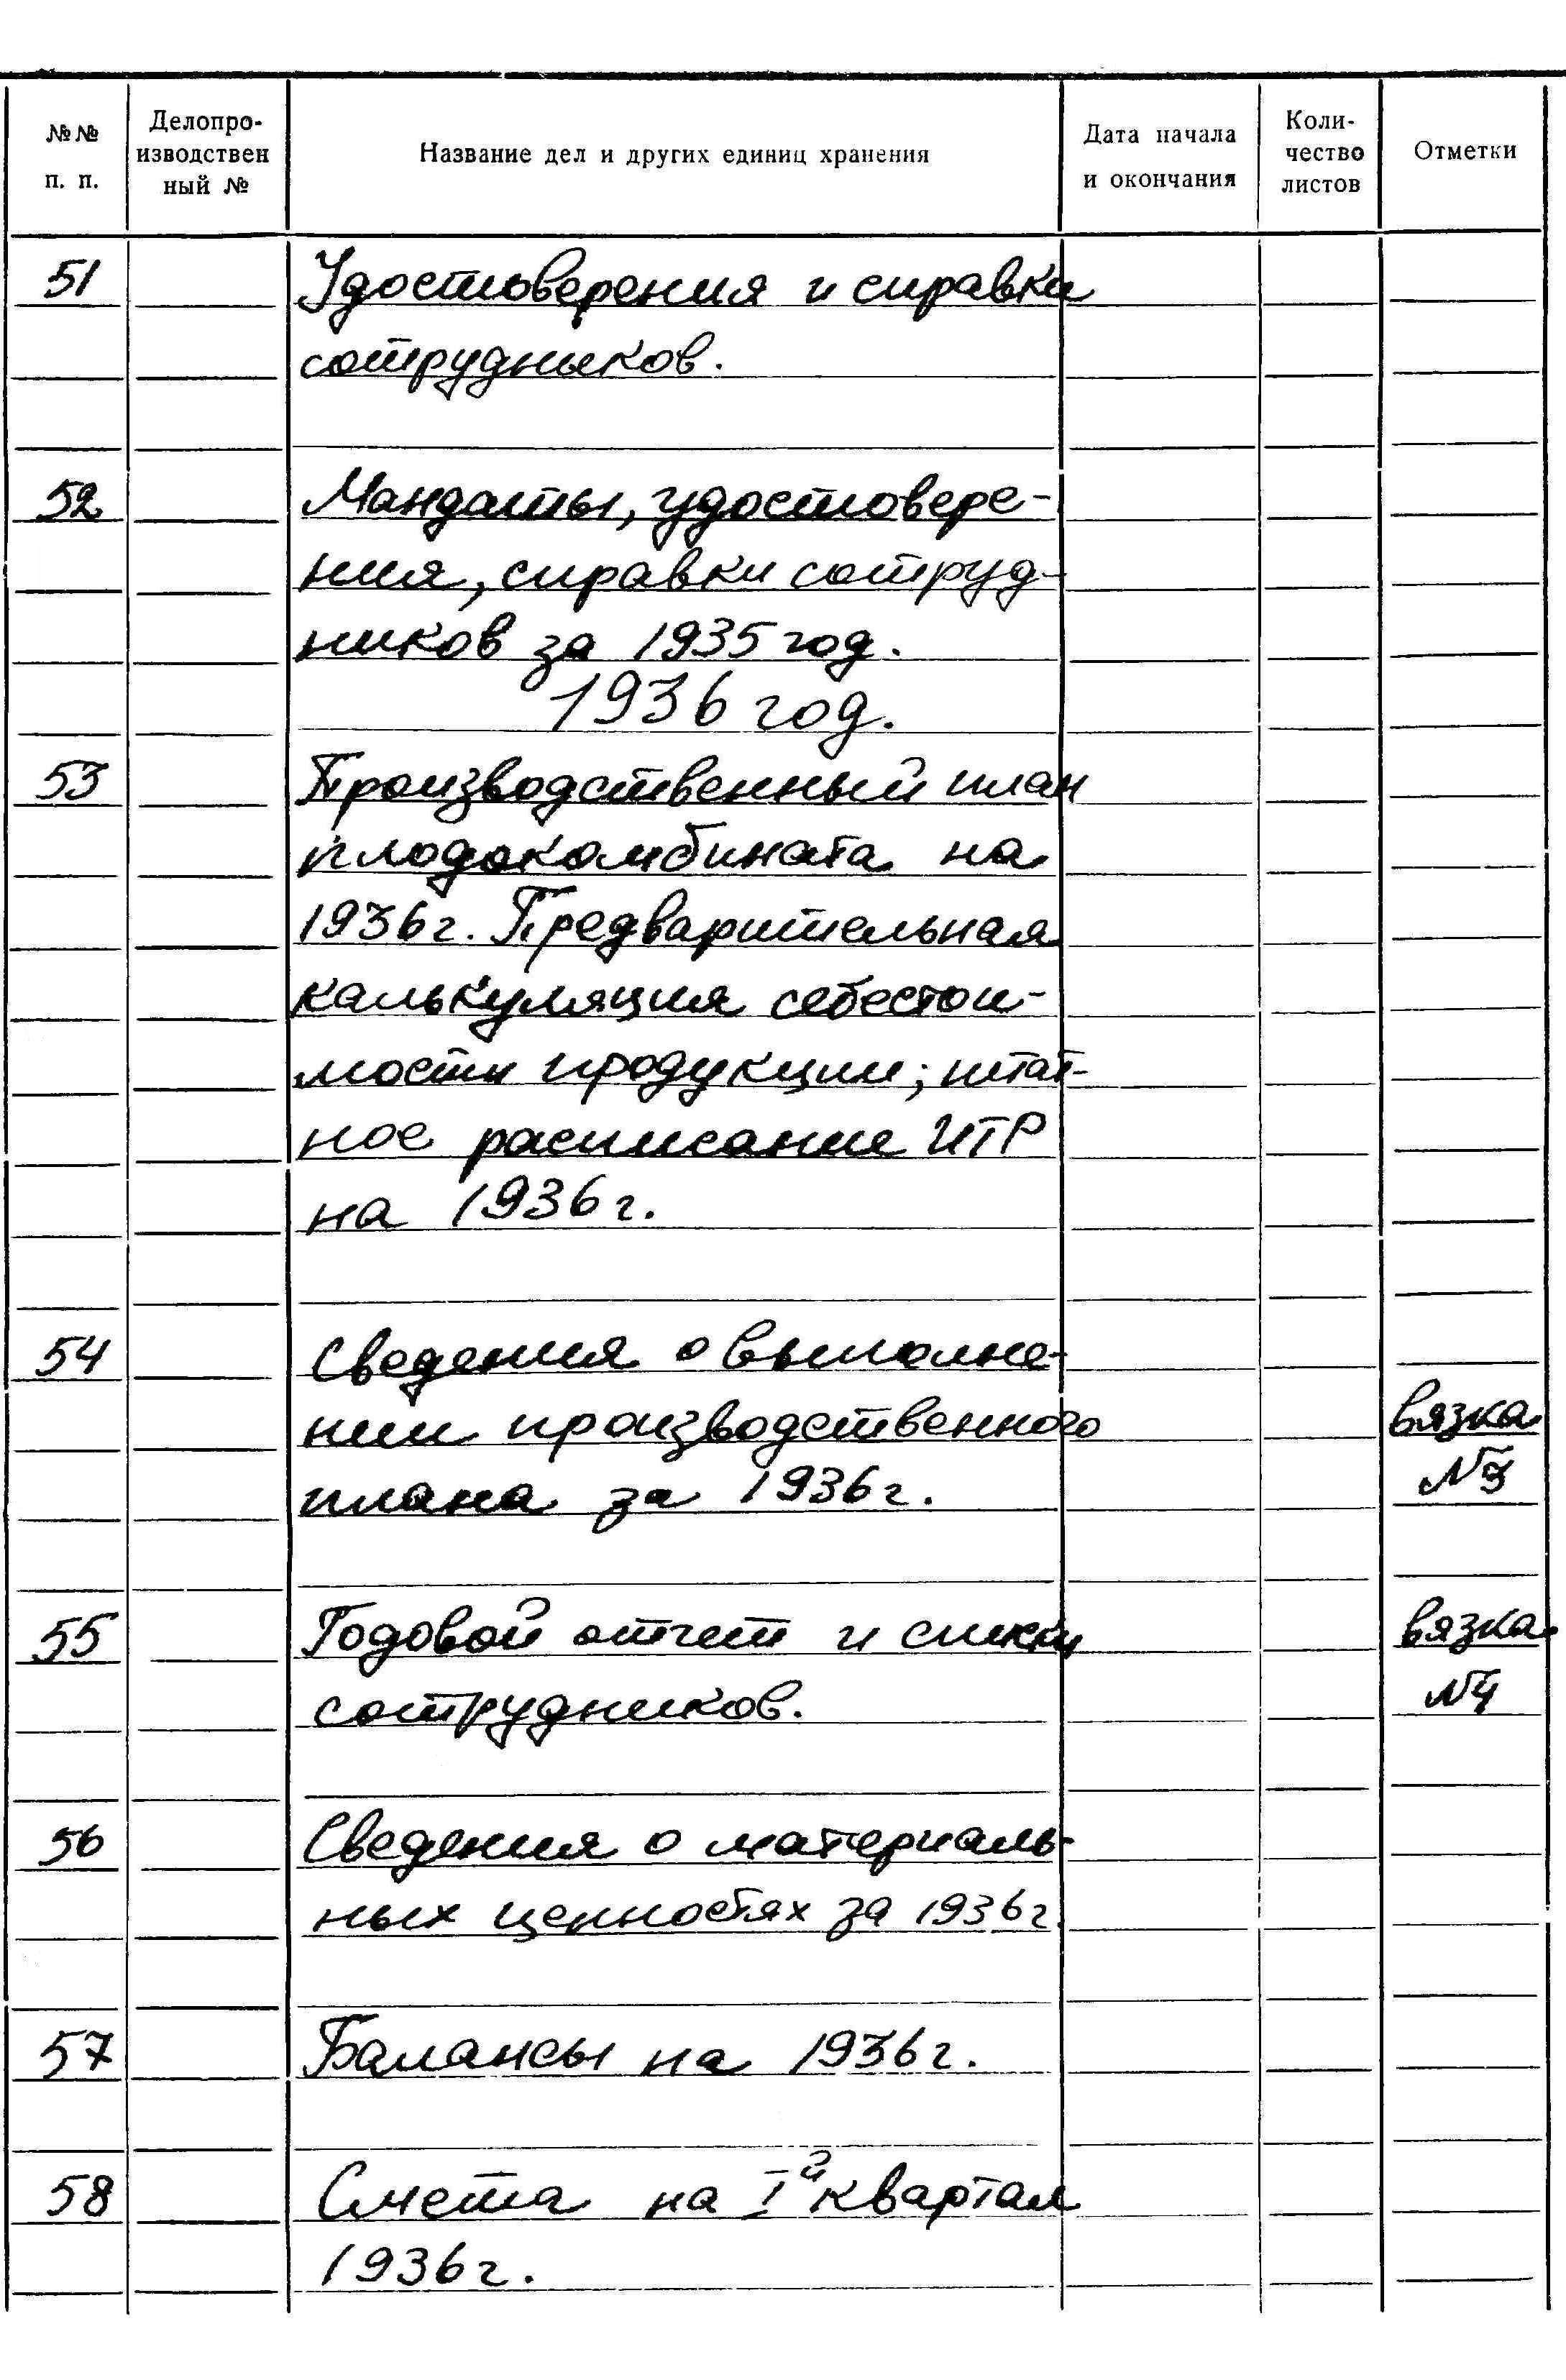 №№ п. п. Делопро-изводствен ный № Название дел и других единиц хранения Дата начала и окончания Коли-чество листов Отметки
51 Удостоверения и справки
сотрудников.
52 Мандаты, удостовере-
ния, справки сотруд-
ников за 1935 год.
1936 год.
53 Производственный план
плодокомбината на
1936г. Предварительная
калькуляция себестои-
мости продукции; штат-
ное расписание ИТР
на 1936г.
54 Сведения о выполне-
нии производственного вязка
плана за 1936г. №3
55 Годовой отчет и списки вязка
сотрудников. №4
56 Сведения о материаль-
ных ценностях за 1936г.
57 Балансы на 1936г.
58 Смета на Iй квартал
1936г.